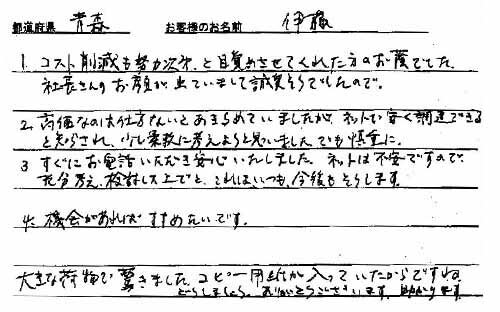 都道府県 青森 お客様のお名前 伊藤
1. コスト削減も努力次第と目覚めさせてくれた方のお蔭でした。
社長さんのお顔が出ていまして誠実そうでしたので。
2. 高価なのは仕方ないとあきらめていましたが、ネットで安く調達できる
と知らされ、少し柔軟に考えようと思いました でも慎重に。
3 すぐにお電話いただき安心いたしました。ネットは不安ですので、
充分考え、検討した上でと、これはいつも、今後もそうします。
4. 機会があればすすめたいです。
大きな荷物で驚きました。コピー用紙が入っていたからですね
どうしましょう。ありがとうございます。助かります